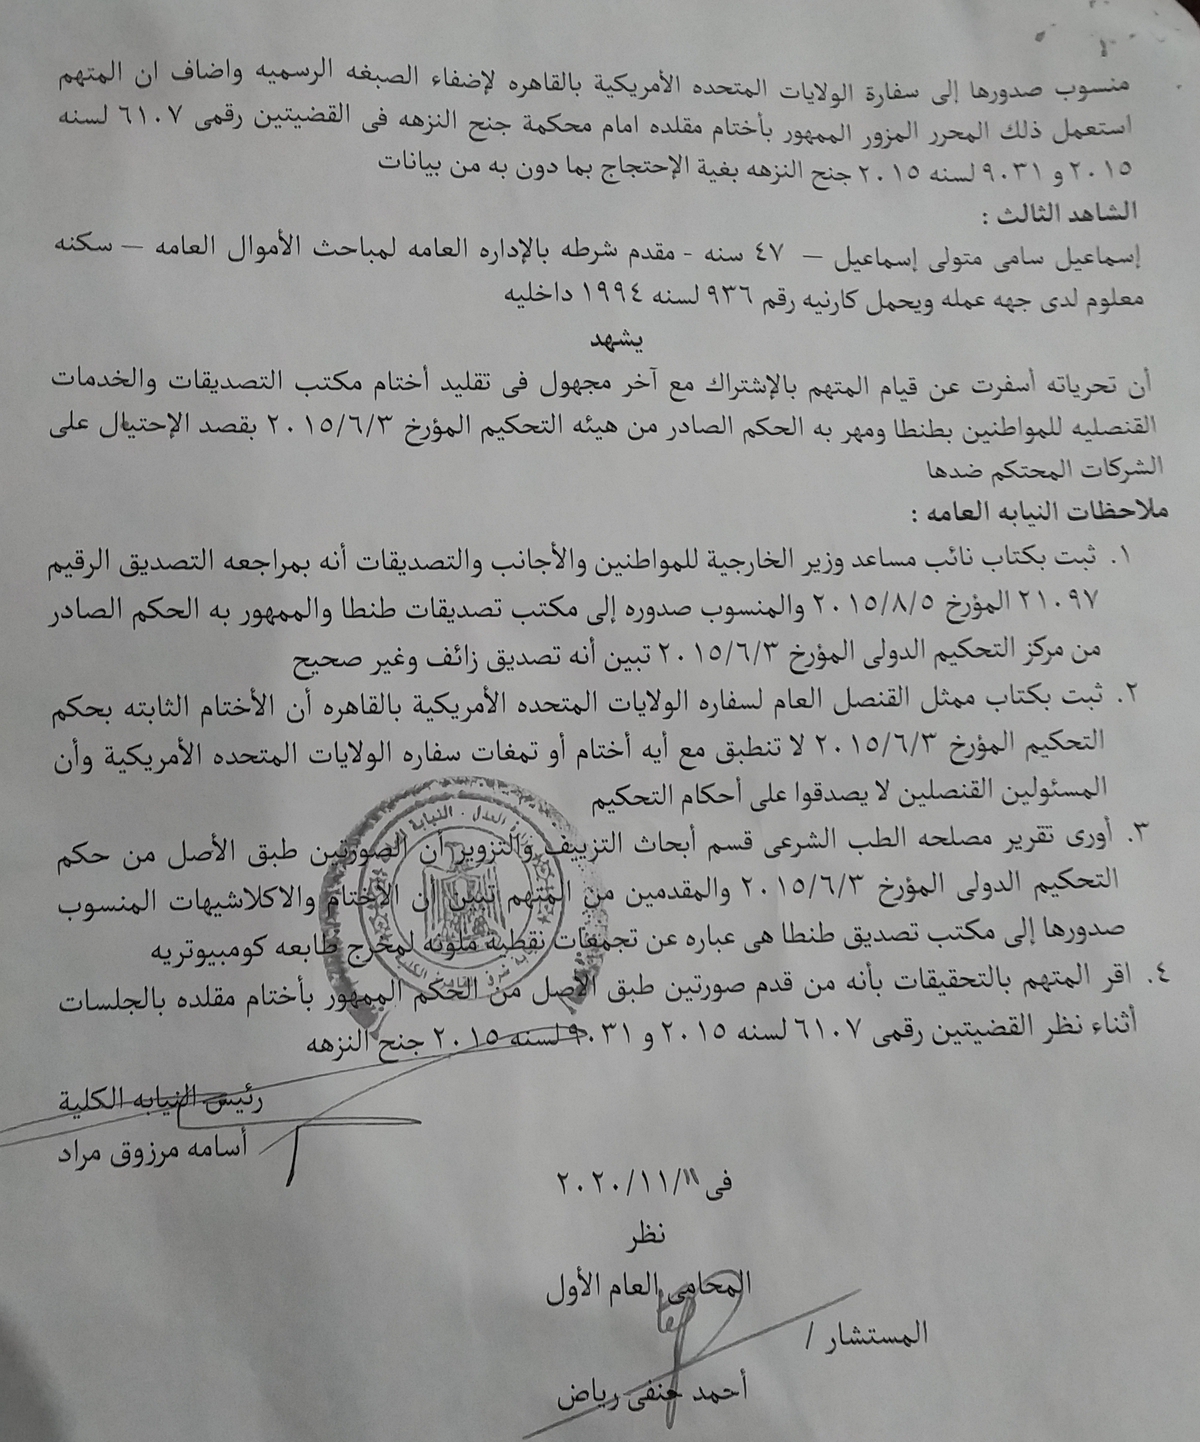 منسوب صدورها إلى سفارة الولايات المتحده الأمريكية بالقاهره لإضفاء الصبغه الرسميه واضاف ان المتهم
استعمل ذلك المحرر المزور الممهور بأختام مقلده امام محكمة جنح النزهه فى القضيتين رقمى ٦١٠٧ لسنه
٢٠١٥ و ٩٠٣١ لسنه ٢٠١٥ جنح النزهه بغية الإحتجاج بما دون به من بيانات
الشاهد الثالث :
إسماعيل سامى متولى إسماعيل – ٤٧ سنه - مقدم شرطه بالإداره العامه لمباحث الأموال العامه – سكنه
معلوم لدى جهه عمله ويحمل كارنيه رقم ٩٣٦ لسنه ١٩٩٤ داخليه
يشهد
أن تحرياته أسفرت عن قيام المتهم بالإشتراك مع آخر مجهول فى تقليد أختام مكتب التصديقات والخدمات
القنصليه للمواطنين بطنطا ومهر به الحكم الصادر من هيئه التحكيم المؤرخ ٢٠١٥/٦/٣ بقصد الإحتيال على
الشركات المحتكم ضدها
ملاحظات النيابه العامه :
١. ثبت بكتاب نائب مساعد وزير الخارجية للمواطنين والأجانب والتصديقات أنه بمراجعه التصديق الرقيم
٢١٠٩٧ المؤرخ ٢٠١٥/٨/٥ والمنسوب صدوره إلى مكتب تصديقات طنطا والممهور به الحكم الصادر
من مركز التحكيم الدولى المؤرخ ٢٠١٥/٦/٣ تبين أنه تصديق زائف وغير صحيح
٢. ثبت بكتاب ممثل القنصل العام لسفاره الولايات المتحده الأمريكية بالقاهره أن الأختام الثابته بحكم
التحكيم المؤرخ ٢٠١٥/٦/٣ لا تنطبق مع أيه أختام أو تمغات سفاره الولايات المتحده الأمريكية وأن
المسئولين القنصلين لا يصدقوا على أحكام التحكيم
٣. أورى تقرير مصلحه الطب الشرعى قسم أبحاث التزييف والتزوير أن الصورتين طبق الأصل من حكم
التحكيم الدولى المؤرخ ٢٠١٥/٦/٣ والمقدمين من المتهم تبين أن الأختام والاكلاشيهات المنسوب
صدورها إلى مكتب تصديق طنطا هى عباره عن تجمعات نقطيه ملونه لمخرج طابعه كومبيوتريه
٤. اقر المتهم بالتحقيقات بأنه من قدم صورتين طبق الأصل من الحكم الممهور بأختام مقلده بالجلسات
أثناء نظر القضيتين رقمى ٦١٠٧ لسنه ٢٠١٥ و ٩٠٣١ لسنه ٢٠١٥ جنح النزهه
رئيس النيابه الكلية
أسامه مرزوق مراد
فى ١١/١١/٢٠٢٠
نظر
المحامى العام الأول
المستشار /
أحمد حنفى رياض